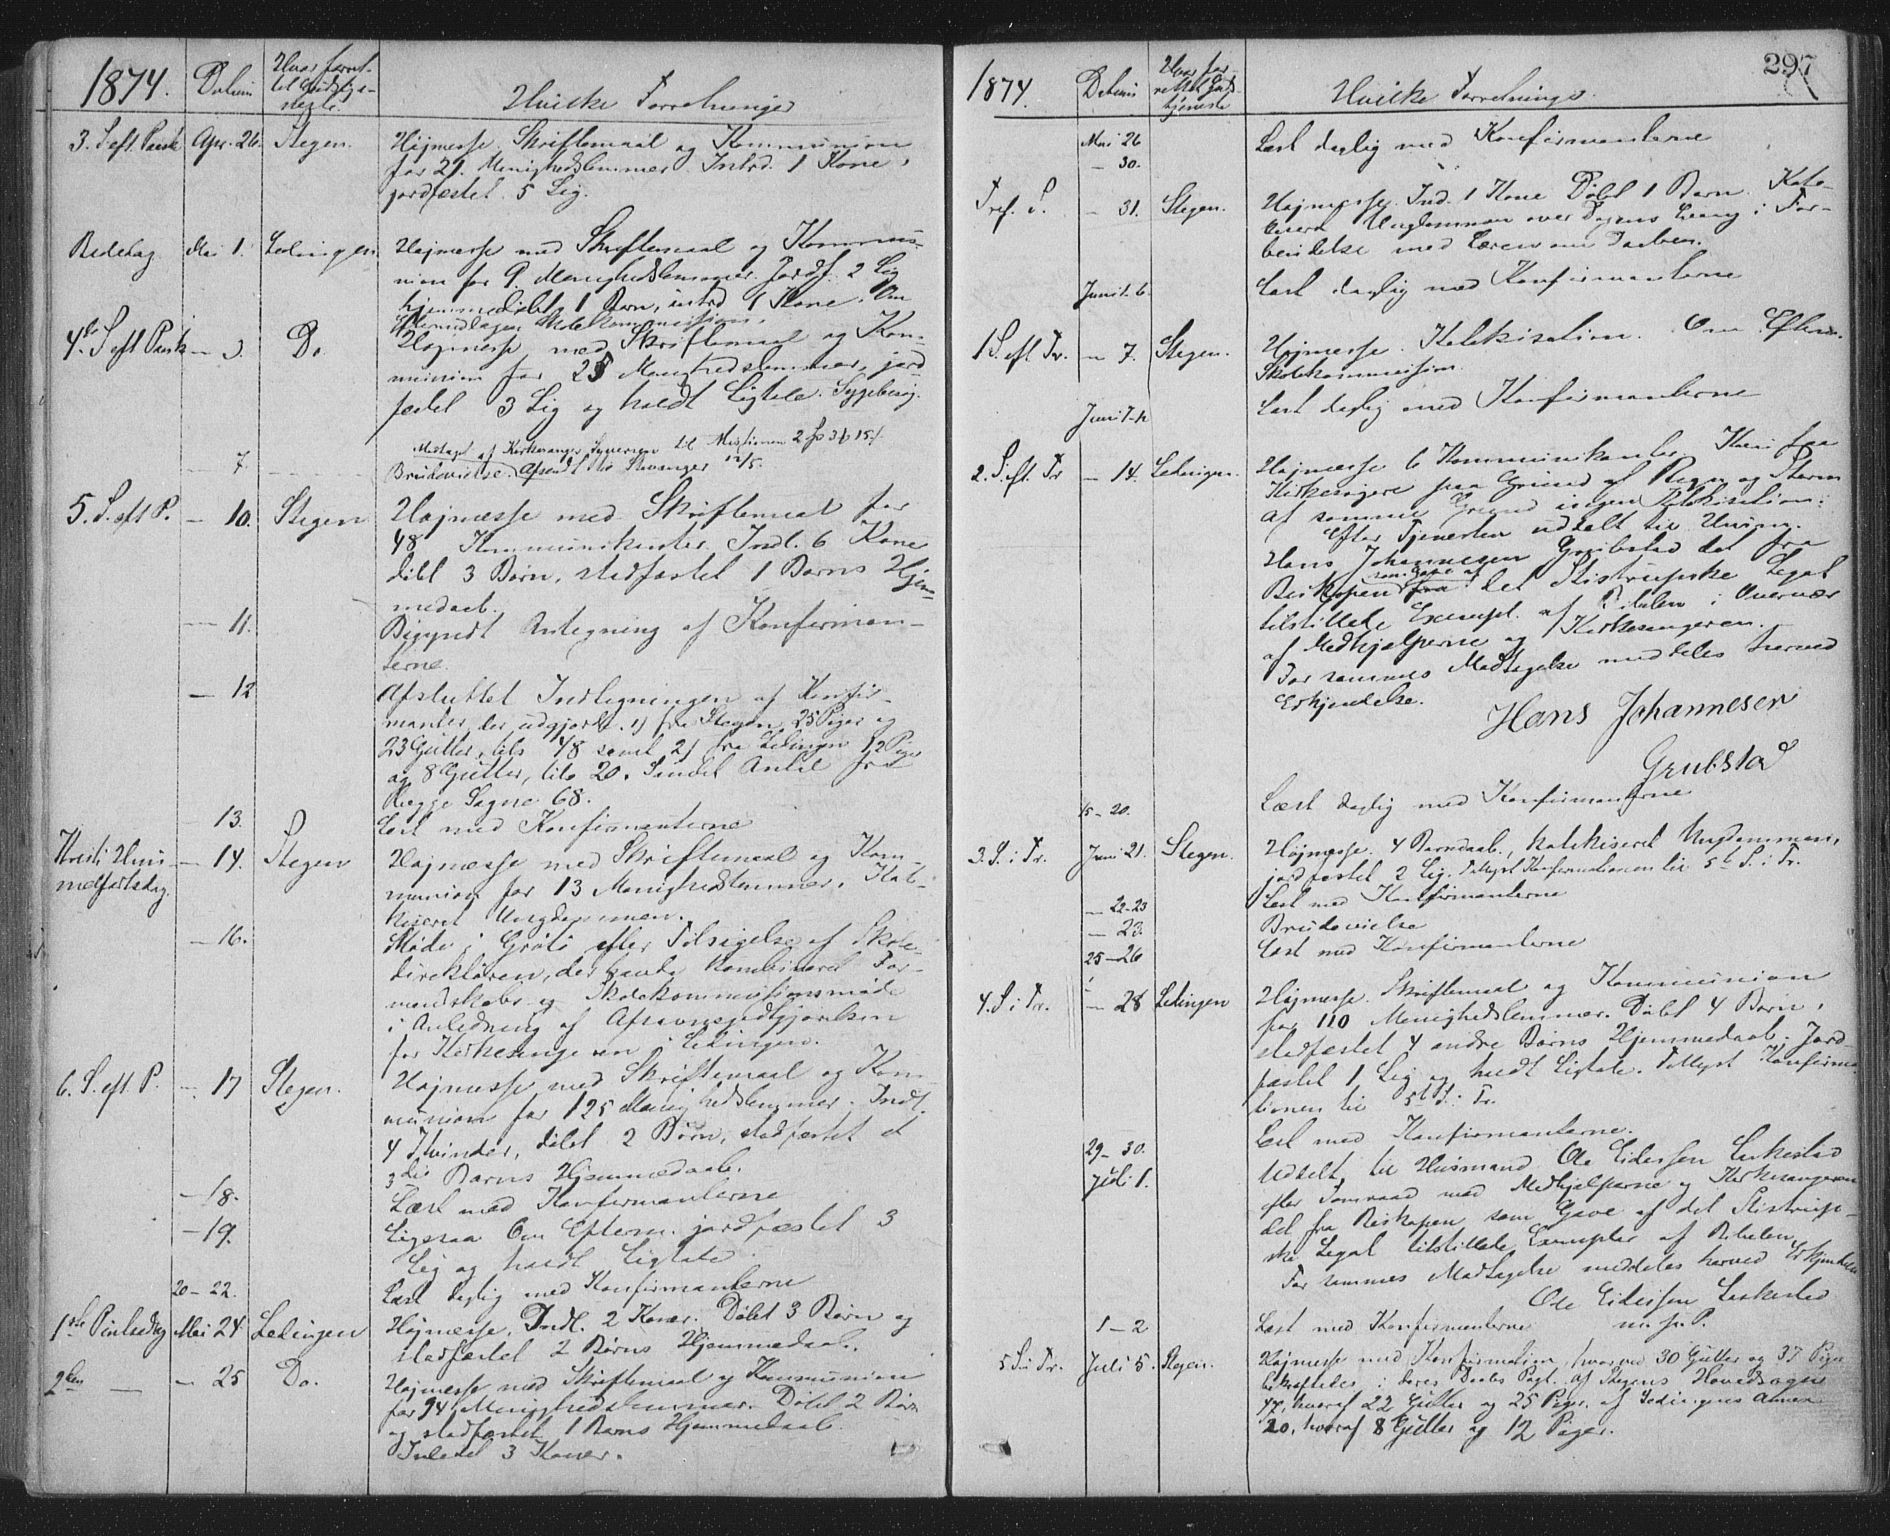 1874.
Datum
Hvor forret-
til Gudstje-
neste.
Hvilke Forretninger
3. S. eft. Paaske
Apr. 26.
Stegen.
Højmesse. Skriftemaal og Kommunion
for 21. Menighedslemmer. Introd. 1 Kone,
jordfæstet 5 Lig.
Bededag
Mai 1.
Ledingen.
Højmesse med Skriftemaal og Kommu-
nion for 9. Menighedslemmer. Jordf. 2 Lig
hjemmedøbt 1 Barn, introd 1 Kone. Om
Eftermidagen Skolekommission.
4de S. eft Pask
- 3.
Do
Højmesse med Skriftemaal og Kom-
munion for 25 Menighedslemmer, jord
fæstet 3 Lig og holdt Ligtale. Sygebesøg.
Modtaget af Kirkesanger Syversen til Missionen 2 Sp 3 15
- 7.
Brudevielse. Afsendt til Stavanger 12/5.
5. S. eft P.
- 10.
Stegen
Højmesse med Skriftemaal for
48 Kommunikanter. Indl. 6 Kone
døbt 3 Børn, stadfæstet 1 Barns Hjem-
medaab.
- 11.
Begyndt Antegning af Konfirman-
terne.
- 12
Afsluttet Indtegningen af Konfir-
manter, der udgjorde. 1) fra Stegen 25 Piger og
23 Gutter, tils 48 samt 2) fra Ledingen 12 Piger
og 8 Gutter, tils 20. Samlet Antal fra
Begge Sogne 68.
- 13.
Læst med Konfirmanterne
Kristi Him-
melfartsdag.
- 14.
Stegen
Højmesse med Skriftemaal og Kom-
munion for 13 Menighedslemmer. Kat-
kiseret Ungdommen.
- 16.
Møde i Grøtø efter Tilsigelse af Skole-
direktøren, der havde kombineret For-
mandskabs og Skolekommissionsmøde
i Anledning af Afsavnsgodtgjørelsen
for Kirkesangeren i Ledingen.
6. S. eft. P.
- 17
Stegen.
Højmesse med Skriftemaal og Kom
munion for 125 Menighedslemmer. Indl.
4 Kvinder, døbt 2 Børn, stadfæstet et
3die Barns Hjemmedaab.
- 18.
Læst med Konfirmanterne
- 19.
Ligesaa. Om Efterm. jordfæstet 3
Lig og holdt Ligtale
20-22.
Læst daglig med Konfirmanterne
1ste Pintsedag
Mai 24
Ledingen
Højmesse. Indl. 2 Koner. Døbt 3 Børn og
stadfæstet 2 Børns Hjemmedaab.
2den —
- 25
Do.
Højmesse med Skriftemaal og Kommunion
for 94 Menighedslemmer. Døbt 2 Børn
og stadfæstet 1 Barns Hjemmedaab
Inledet 3 Koner.
297
1874.
Datum
Hvor for-
rettet Guds-
tjeneste
Hvilke Forretninger.
Mai 26
- 30.
Læst daglig med Konfirmanterne
Tref. S.
- 31.
Stegen.
Højmesse. Ind. 1 Kone Døbt 1 Barn. Kate-
kiseret Ungdommen over Dagens Evang i For-
bindelse med Læren om Daaben.
Juni 1-6.
Læst daglig med Konfirmanterne
1 S. eft Tr.
- 7.
Stegen.
Højmesse. Katekisation. Om Efterm.
Skolekommission.
Juni
Læst daglig med Konfirmanterne
2. S. eft. Tr
- 14.
Ledingen.
Højmesse 6 Kommunikanter. Kun faa
Kirkesøgere paa Grund af Regn og Storm
Af samme Grund ingen Katekisation.
Efter Tjenesten uddelt til Husm.
Hans Johannesen Grubstad det fra
Biskopen som Gave af det Stistrupske Legat
tilstillede Exempl. af Bibelen i Overvær
af Medhjelperne og Kirkesangeren.
For sammes Modtagelse meddeles herved
Erkjendelse.
Hans Johannesen
Grubstad
15-20.
Læst daglig med Konfirmanterne
3. S. i Tr.
Juni 21.
Stegen.
Højmesse. 4 Barnedaab., katekiseret Ungdommen,
jordfæstet 2 Lig. Tillyst Konfirmationen til 5te S. i Tr.
- 22-23
Læst med Konfirmanterne
- 23
Brudevielse
25-26
Læst med Konfirmanterne
4. S. i Tr.
- 28
Ledingen
Højmesse. Skriftemaal og Kommunion
for 110 Menighedslemmer. Døbt 4 Børn,
stadfæstet 4 andre Børns Hjemmedaab. Jord-
fæstet 1 Lig og holdt Ligtale. Tillyst Konfirma
tionen til 5te S. i Tr.
29-30.
Læst med Konfirmanterne.
Juli 1.
Uddelt til Husmand Ole Eidessen Leskestad
efter Samraad med Medhjelperne og Kirkesangeren
det fra Biskopen som Gave af det Stistrup-
ske Legat tilstillede Exemplar af Bibelen.
For sammes Modtagelse meddeles herved Erkjendelse
Ole Eidessen Leskestad
m. f. P.
1-2
Læst med Konfirmanterne
5 S. i Tr.
Juli 5.
Stegen.
Højmesse med Konfirmation, hvorved 30 Gutter og 37 Piger
bekræftedes i deres Daabs Pagt. af Stegens Hovedsogn
47, hvoraf 22 Gutter og 25 Piger, af Ledingens Annex
20, hvoraf 8 Gutter og 12 Piger.